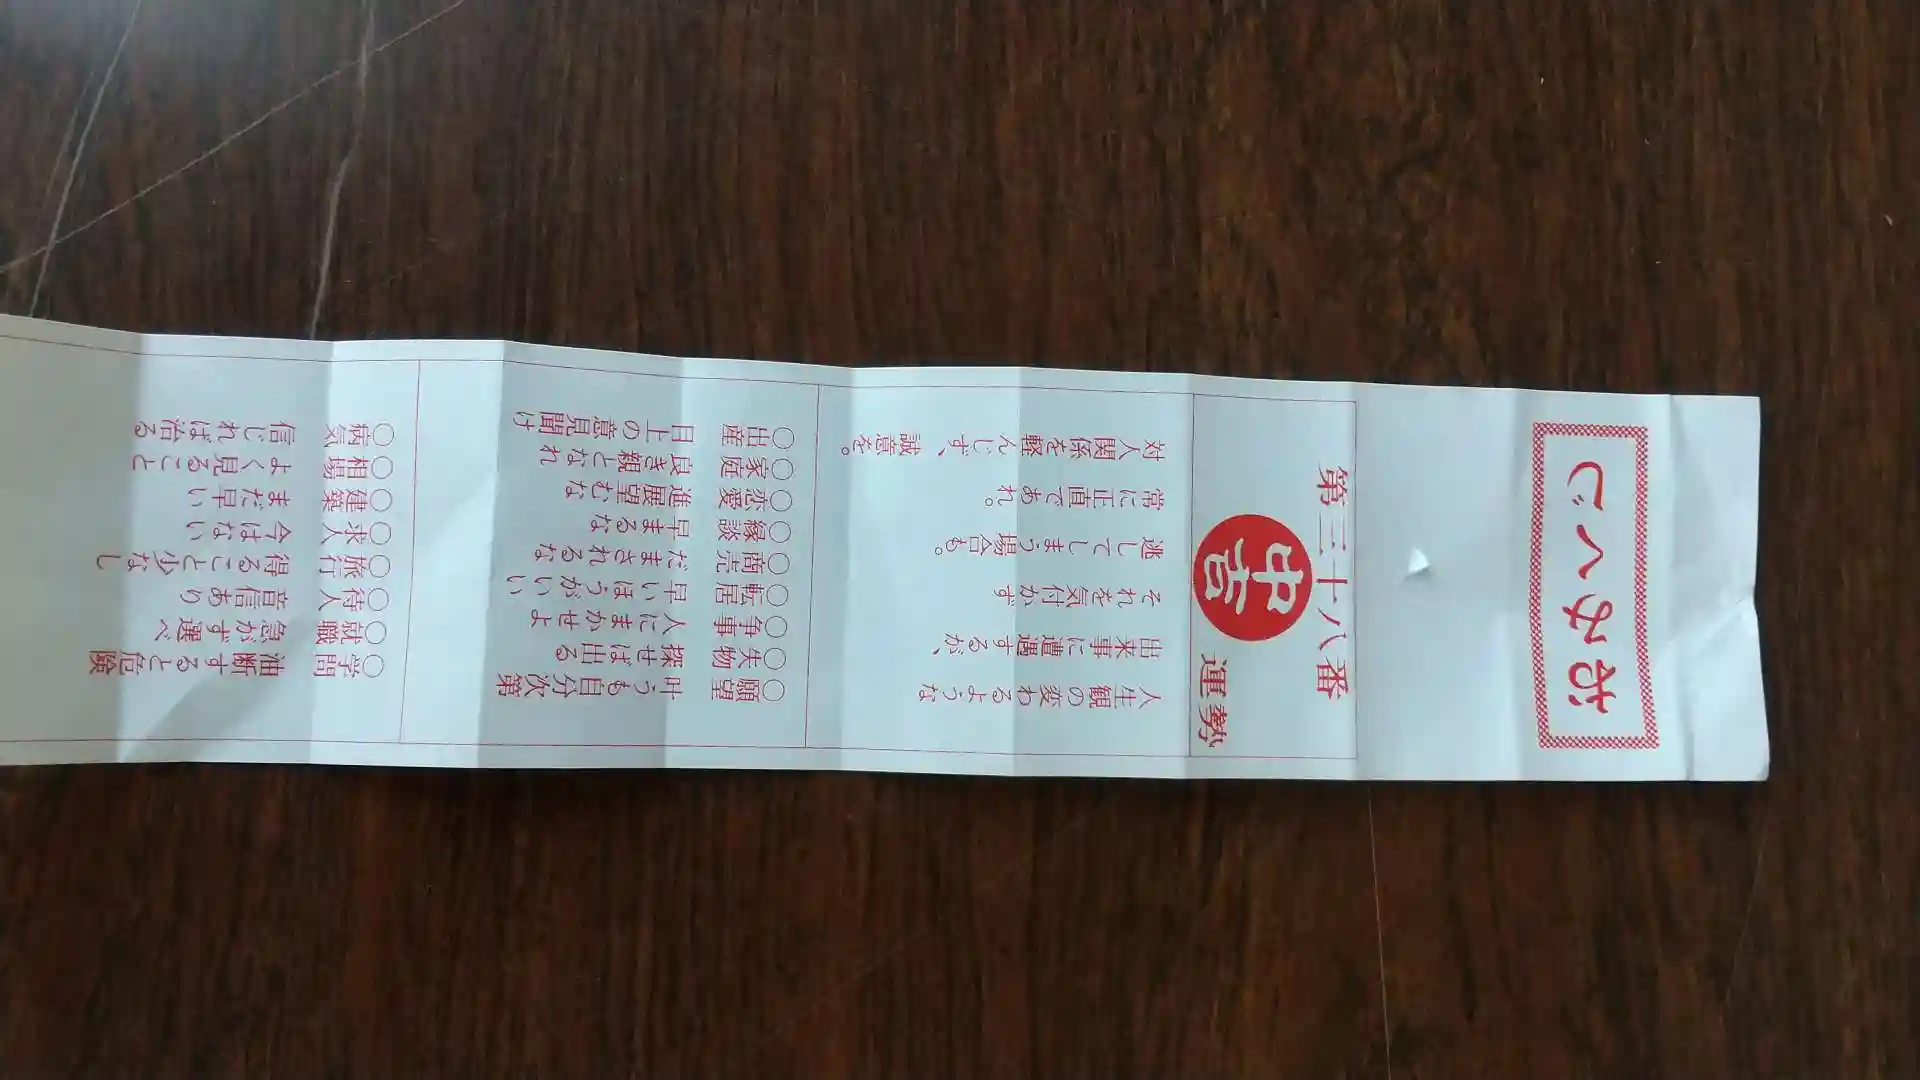 おみくじ
第三十八番
中吉
運勢
人生観の変わるような
出来事に遭遇するが、
それを気付かず
逃してしまう場合も。
常に正直であれ。
対人関係を軽んじず、誠意を。
○願望 叶うも自分次第
○失物 探せば出る
○争事 人にまかせよ
○転居 早いほうがいい
○商売 だまされるな
○縁談 早まるな
○恋愛 進展望むな
○家庭 良き親となれ
○出産 目上の意見聞け
○学問 油断すると危険
○就職 急がず選べ
○待人 音信あり
○旅行 得ること少なし
○求人 今はない
○建築 まだ早い
○相場 よく見ること
○病気 信じれば治る